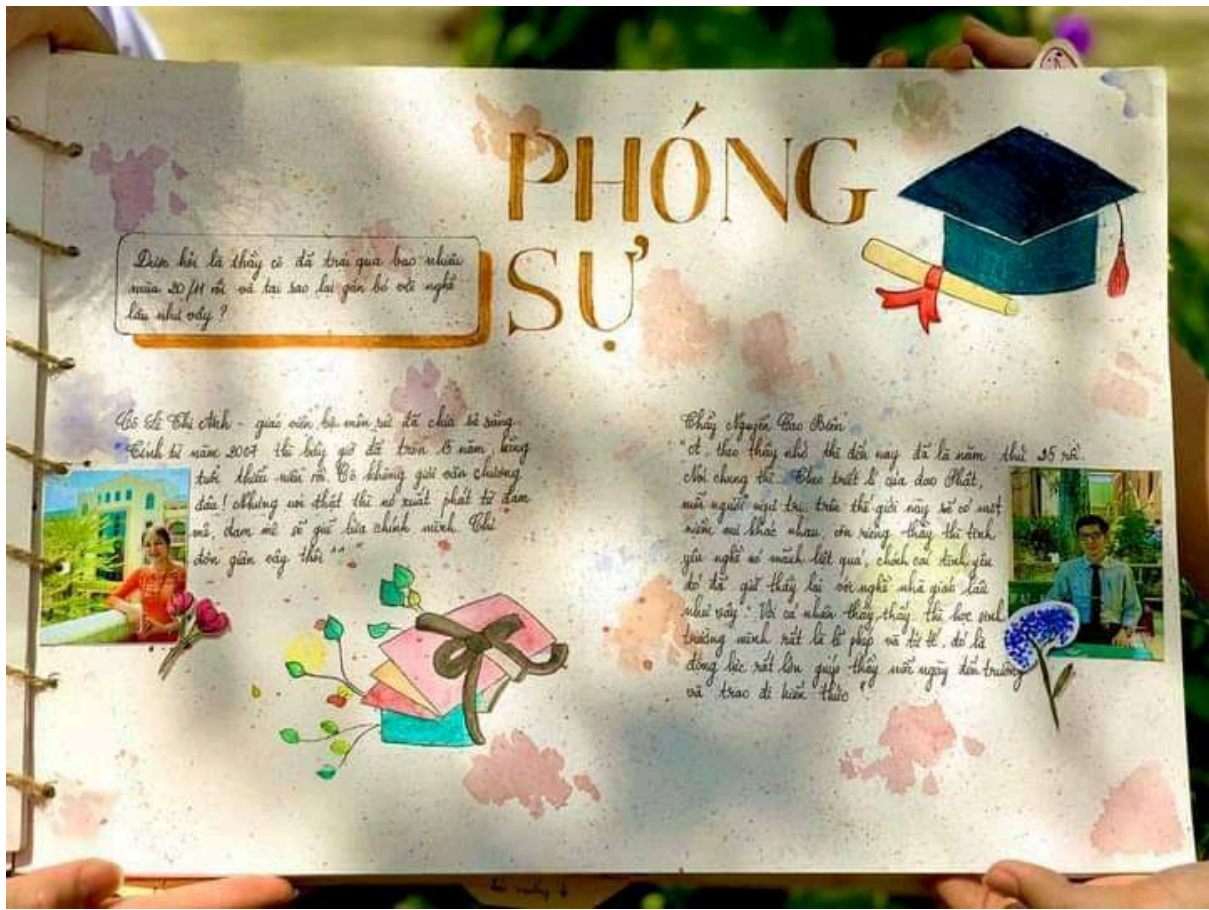 PHÓNG
SỰ
Được hỏi là thầy cô đã trải qua bao nhiêu
mùa 20/11 rồi và tại sao lại gắn bó với nghề
lâu như vậy ?
Cô Lê Thị Anh - giáo viên bộ môn sử đã chia sẻ rằng
"Tính từ năm 2007 thì bây giờ đã tròn 15 năm, bằng
tuổi thiếu niên rồi. Cô không giỏi văn chương
đâu! Nhưng nói thật thì nó xuất phát từ đam
mê, đam mê sẽ giữ lửa chính mình. Chỉ
đơn giản vậy thôi ^^ "
Thầy Nguyễn Cao Biên
theo thầy nhớ thì đến nay đã là năm thứ 25 rồi.
Nói chung thì.. Theo triết lí của đạo Phật,
mỗi người ngự trị trên thế giới này sẽ có một
niềm vui khác nhau, còn riêng thầy thì tình
yêu nghề nó mãnh liệt quá, chính cái tình yêu
đó đã giữ thầy lại với nghề nhà giáo lâu
như vậy". Với cá nhân thầy, thầy thì học sinh
trường mình rất là lễ phép và tử tế, đó là
động lực rất lớn giúp thầy mỗi ngày đến trường
và trao đi kiến thức "